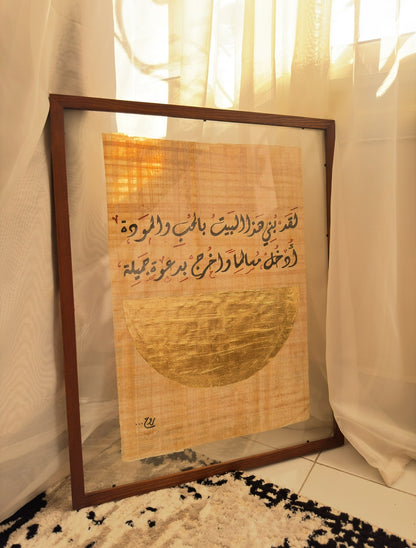 لَقَد بُنيَ هَذا البَيت بالحُبِ والمَودة
أُدخُل مُسالِماً وَاخرُج بِدعوة جَميلة